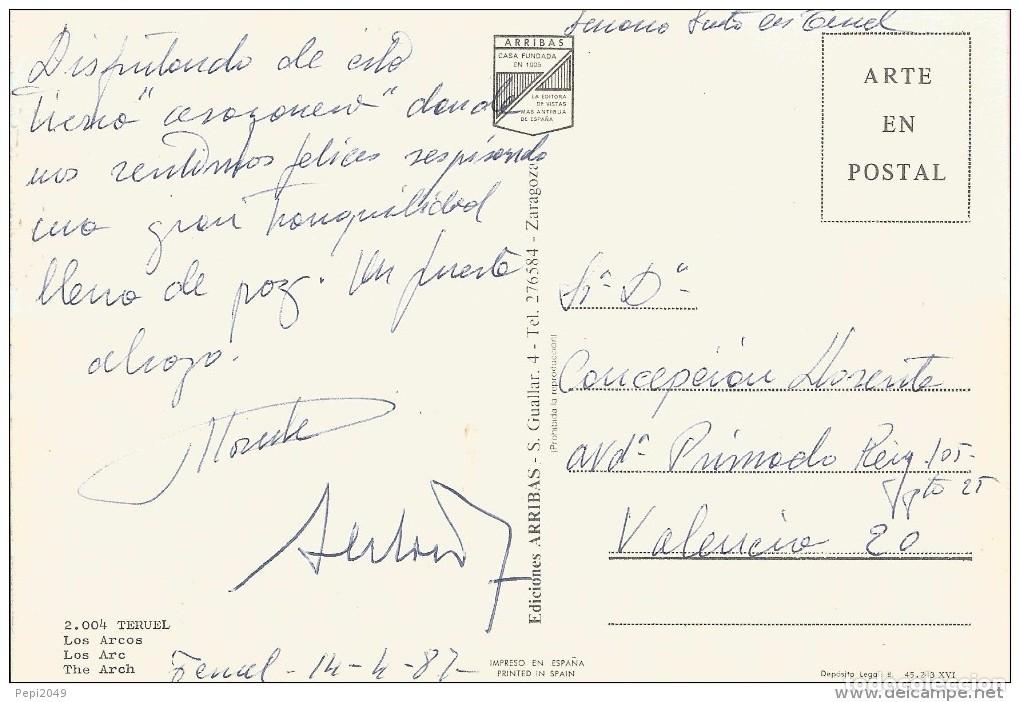 Semana Santa en Teruel
Disfrutando de esta
tierra "corazonera" donde
nos sentimos felices respirando
una gran tranquilidad
llena de paz. Un fuerte
abrazo.
Llorente
Teruel - 14-4-87-
2.004 TERUEL
Los Arcos
Los Arc
The Arch
ARRIBAS
CASA FUNDADA
EN 1905
LA EDITORA
DE VISTAS
MAS ANTIGUA
DE ESPAÑA
Ediciones ARRIBAS - S. Guallar. 4 - Tel. 276584 - Zaragoza
(Prohibida la reproducción)
IMPRESO EN ESPAÑA
PRINTED IN SPAIN
ARTE
EN
POSTAL
Srª Dª
Concepción Llorente
avdª Primado Reig 105-
ptª 25
Valencia 20
Depósito Legal B. 45.213 XVI
Pepi2049
todocoleccion
www.delcampe.net